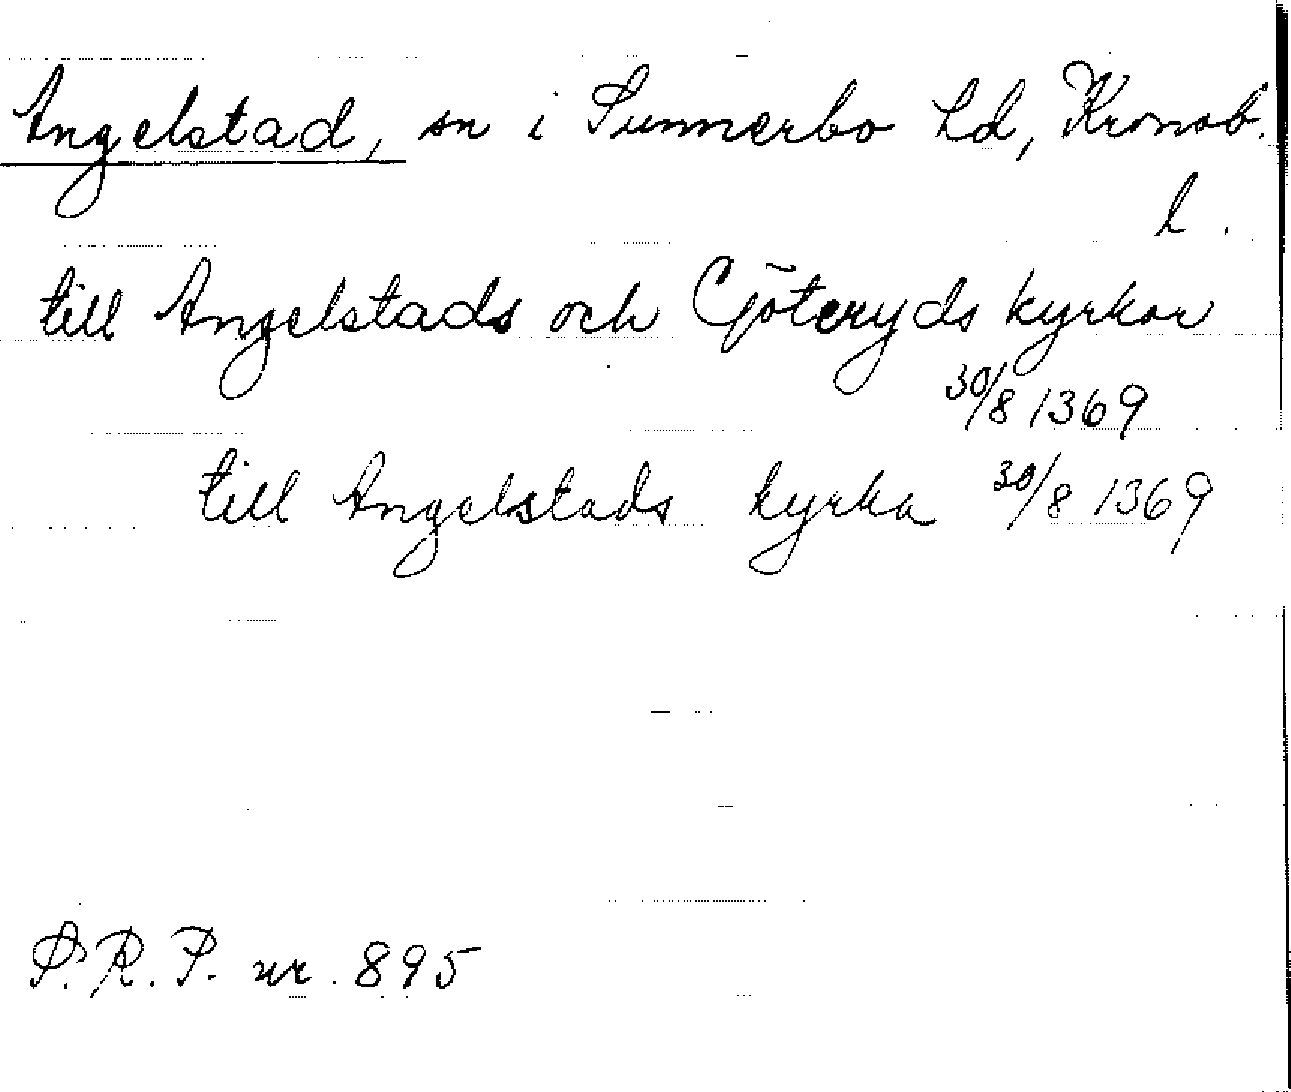 Angelstad, sn i Sunnerbo hd, Kronob.
l.
till Angelstads och Göteryds kyrkor
30/8 1369
till Angelstads kyrka 30/8 1369
S.R.P. nr. 895